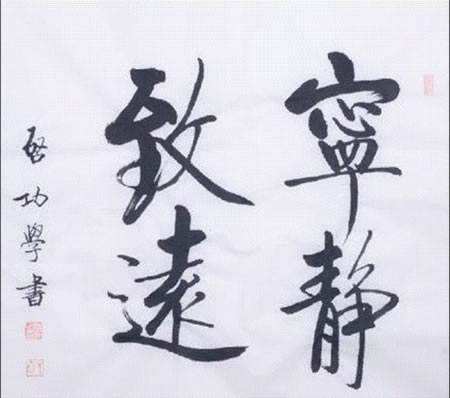 寧静
致遠
啓功學書